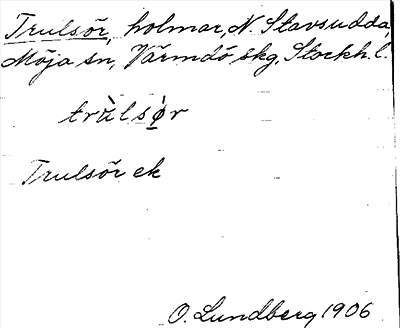 Trulsör, holmar, N. Stavsudda,
Möja sn, Värmdö skg, Stockh. l.
trùlsø̀r
Trulsör ek
O. Lundberg 1906